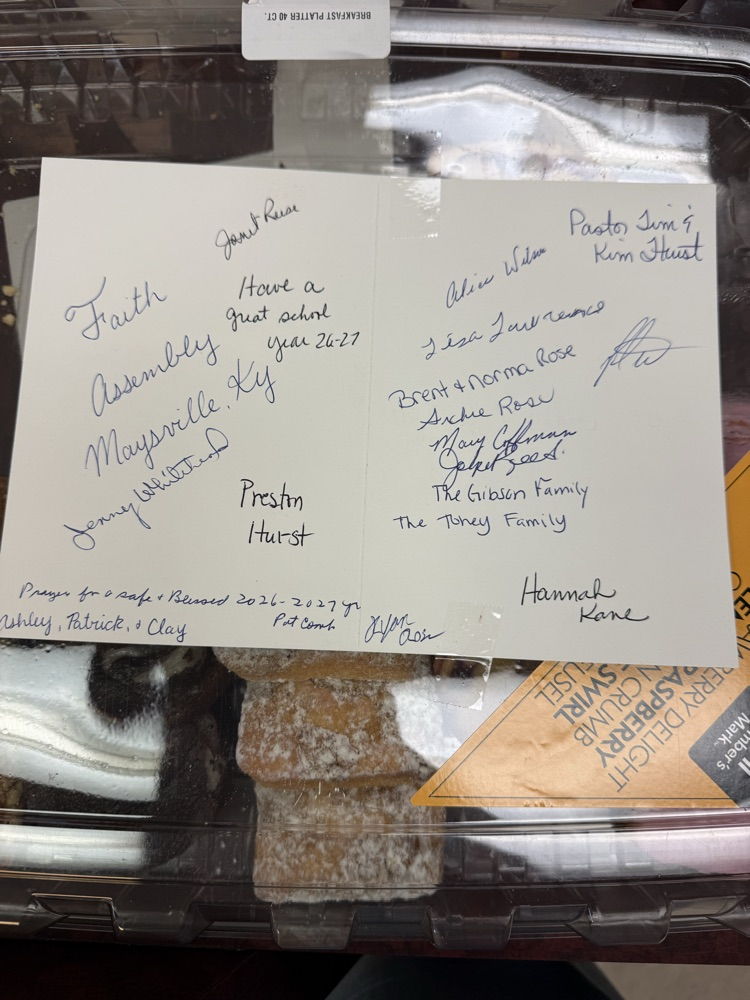 BREAKFAST PLATTER 40 CT.
Janet Reese
Have a
great school
year 26-27
Faith
Assembly
Maysville, Ky
Jenny Whitehead
Preston
Hurst
Prayer for a safe + Blessed 2026-2027 yr
Ashley, Patrick, + Clay
Pat Comb
Ryan
Rose
Pastor Tim &
Kim Hurst
Alice Wilson
Lisa Lawrence
Brent + Norma Rose
Archie Rose
Mary Coffman
The Gibson Family
The Toney Family
Hannah
Kane
RASPBERRY
SWIRL
N CRUMB
EUSEL
ERRY DELIGHT
mber's
Mark